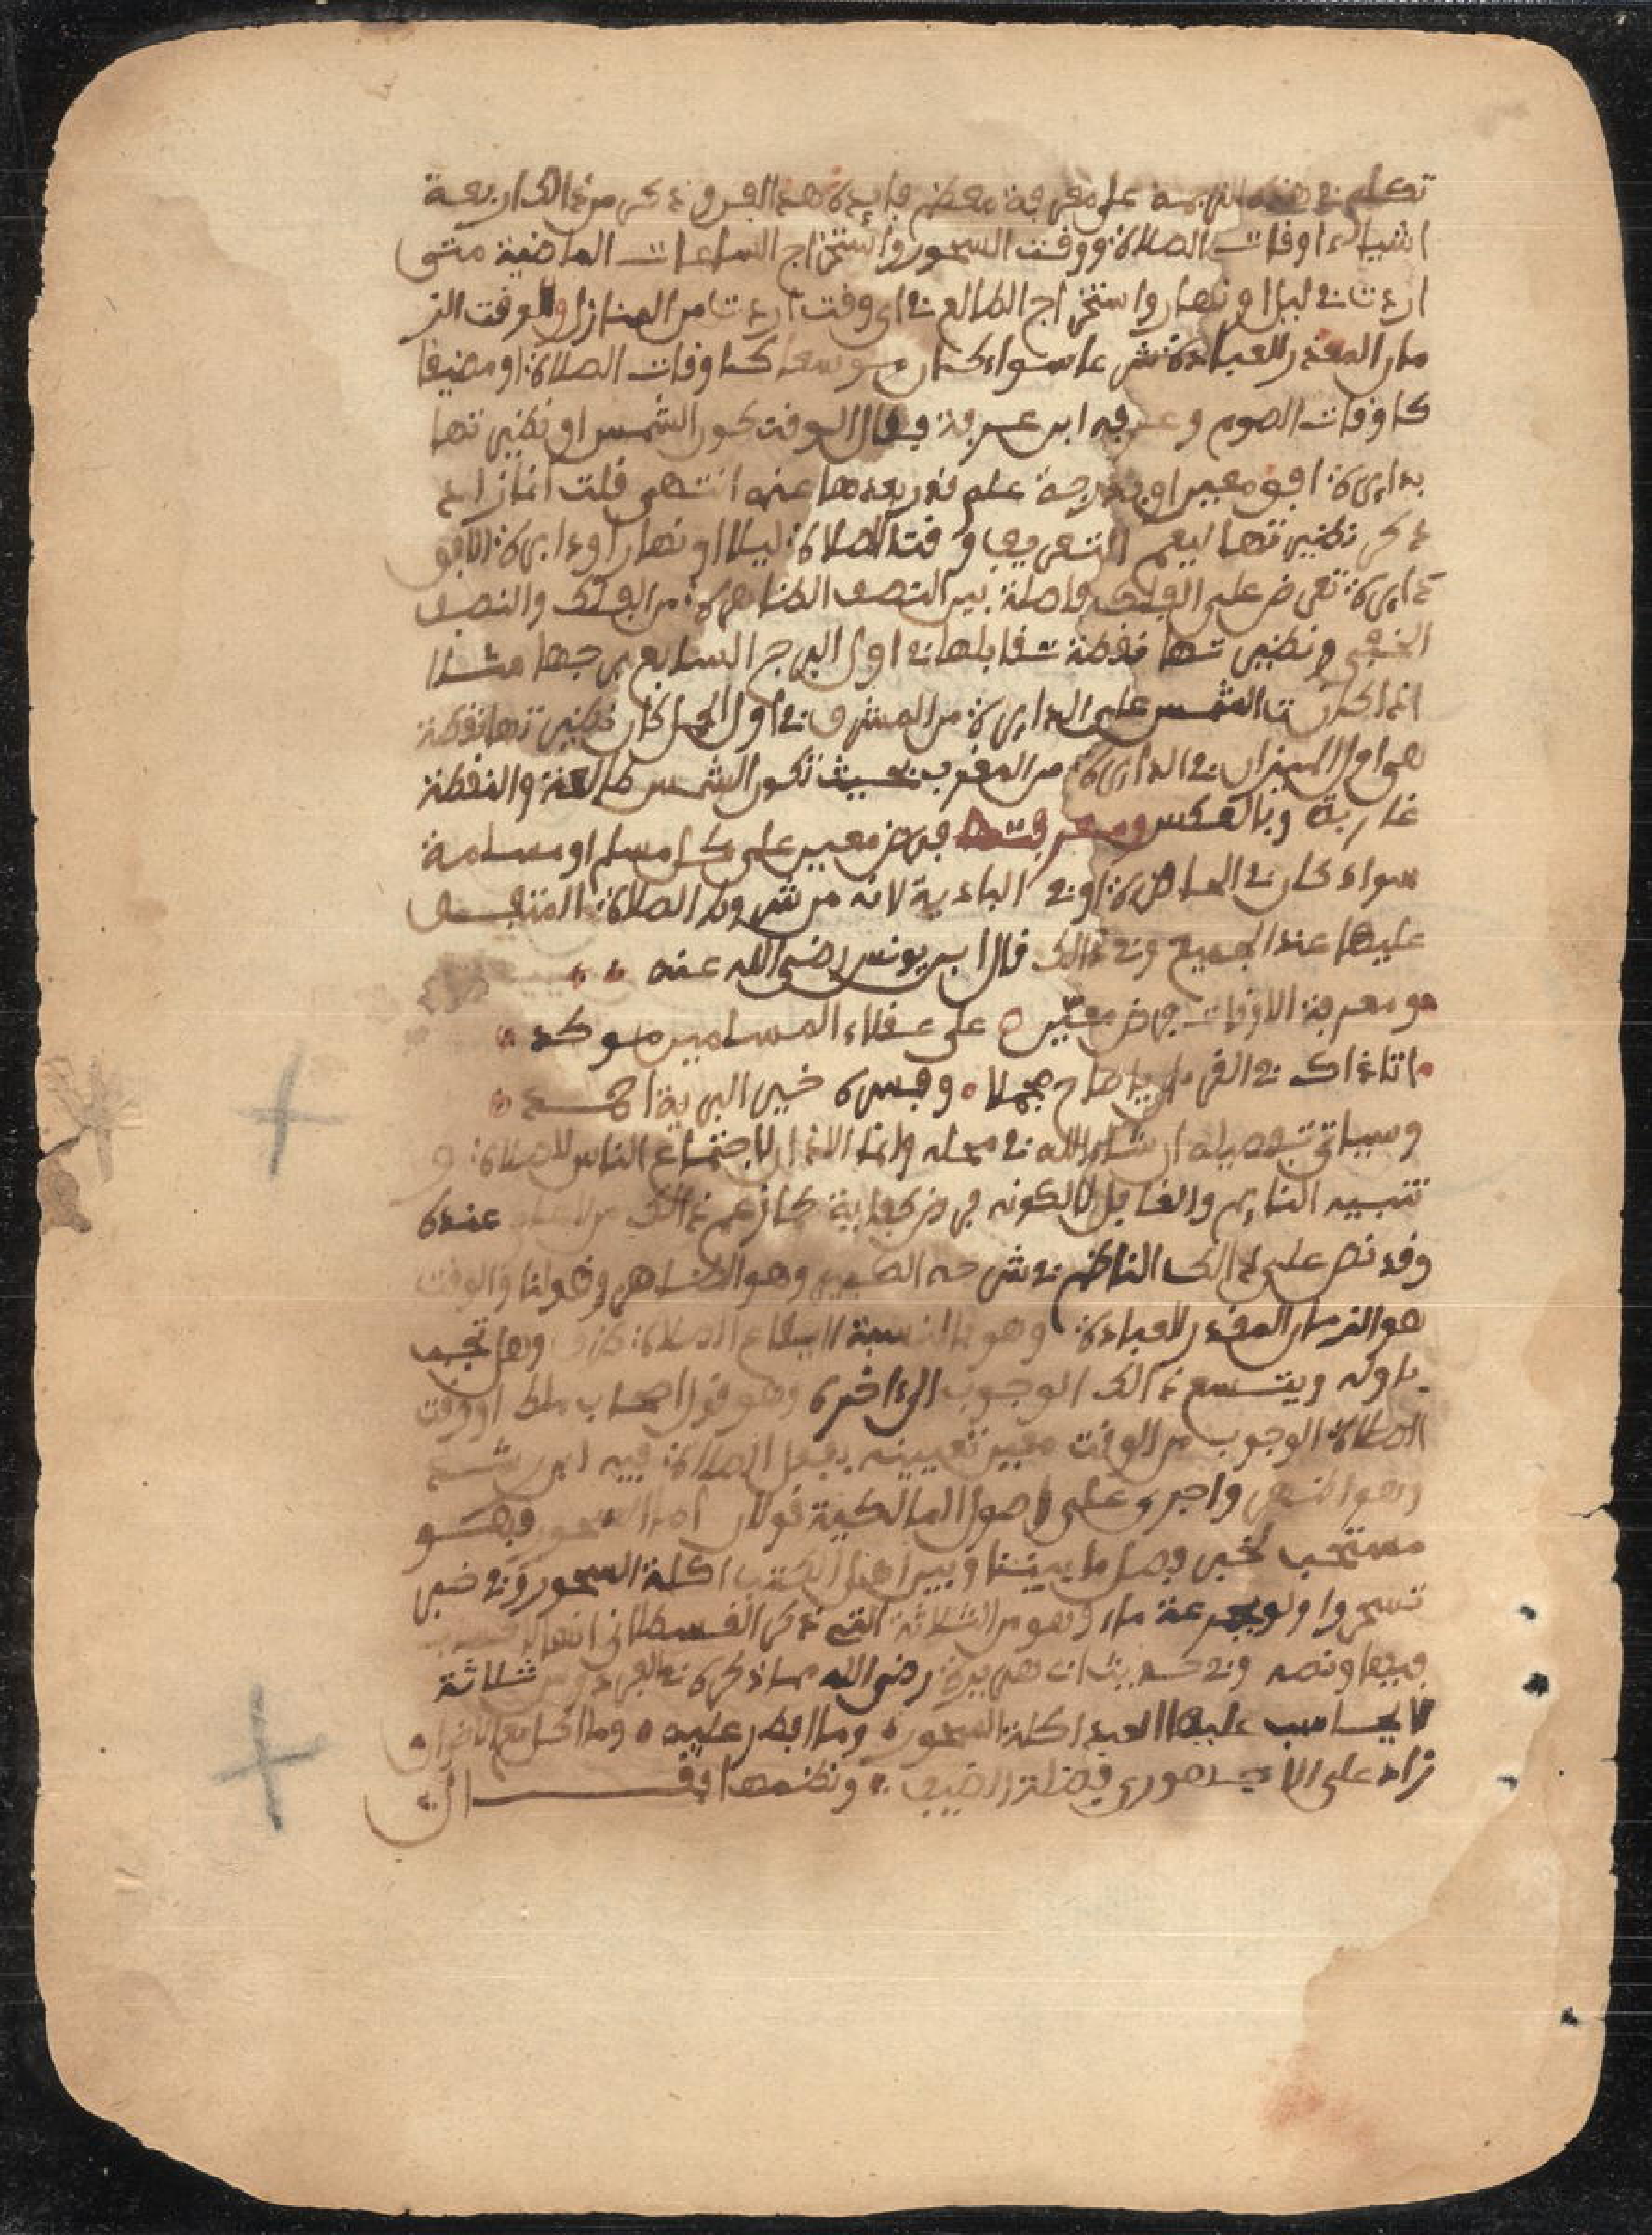 تكلم في هذه الترجمة على معرفة معظم فايدة هذا الفن وذكر من ذالك اربعة
اشياء اوقات الصلاة ووقت السحور واستخراج الساعات الماضية متى
اردت في ليل او نهار واستخراج الطالع في اي وقت اردت من المنازل والوقت الز
مان المقدر للعبادة شرعا سواء كان موسعا كاوقات الصلاة او مضيقا
كاوقات الصوم وعرفه ابن عرفة فقال الوقت كون الشمس او نظيرتها
بدايرة افق معين او بدرجة علم قدر بعدها عنه انتهى قلت انما زاد
ذكر نظيرتها ليعم التعريف وقت الصلاة ليلا او نهارا ودايرة الافق
دايرة تعرض على الفلك فاصلة بين النصف الظاهرة من الفلك والنصف
الخفي ونظيرتها نقطة تقابلها في اول البرج السابع برجها مثلا
اذا كانت الشمس على الدايرة من المشرق في اول الحمل كان نظيرتها نقطة
هو اول الميزان في الدايرة من المغرب بحيث تكون الشمس طالعة والنقطة
غاربة وبالعكس ومعرفتها فرض معين على كل مسلم او مسلمة
سواء كان في الحاضرة او في البادية لانه من شروط الصلاة المتفق
عليها عند الجميع وفي ذالك قال ابن يونس رضي الله عنه
ومعرفة الاوقات فرض معين على عقلاء المسلمين موكد
اتا ذاك في القرءان يا صاح مجملا وفسره خير البرية احمد
وسياتي تفصيله ان شاء الله في محله وانما الاذان لاجتماع الناس للصلاة و
تنبيه النايم والغافل لا لكونه فرض كفاية كما زعم ذالك من لا علم عنده
وقد نص على ذالك الناظم في شرحه الكبير وهو الظاهر وقولنا والوقت
هو الزمان المقدر للعبادة وهو بالنسبة لايقاع الصلاة ظرف وهل تجب
باوله ويتسع ذالك الوجوب الى ءاخره وهو قول اصحاب ملك او وقت
الصلاة الوجوب من الوقت معين تعيينه بفعل الصلاة فيه ابن رشد
وهو اظهر واجرى على اصول المالكية قولان اما السحور فهو
مستحب لخبر فصل ما بيننا وبين اهل الكتب اكلة السحور وفي خبر
تسحروا ولو بجرعة ماء وهو من الثلاثة التي ذكر القسطلاني انها لا حساب
فيها ونصه وفي حديث ابي هريرة رضي الله مما ذكره في الفردوس ثلاثة
لا يحاسب عليها العبد اكلة السحور وما افطر عليه وما اكل مع الاخوان
زاد على الاجهوري فضلة الضيف ونظمها فقال